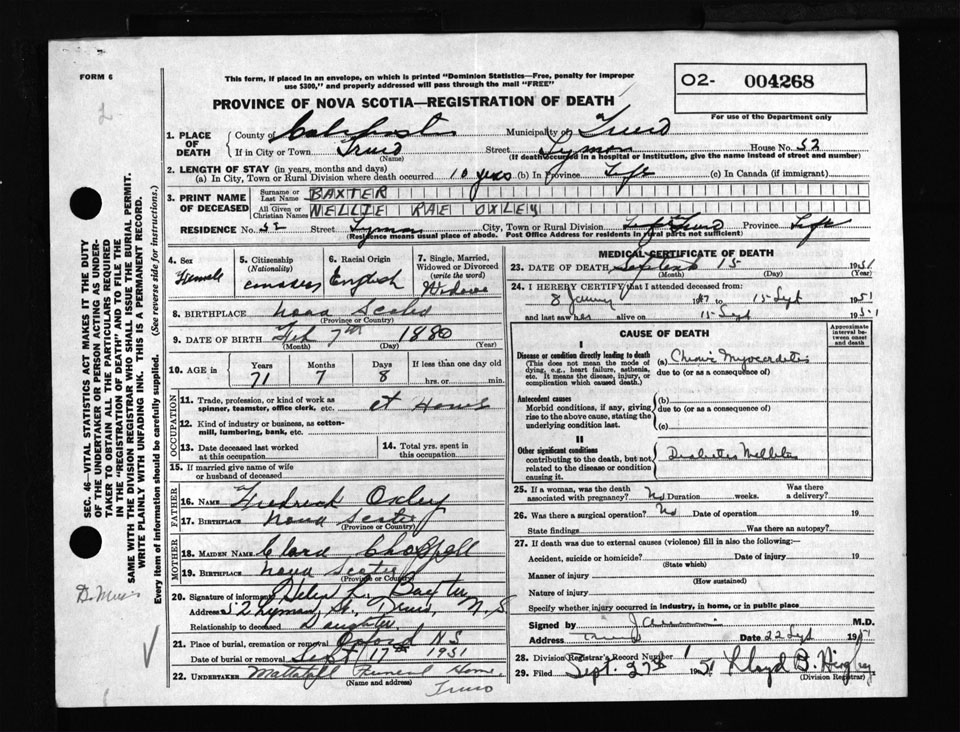 FORM 6
This form, if placed in an envelope, on which is printed "Dominion Statistics—Free, penalty for improper
use $300," and properly addressed will pass through the mail "FREE"
PROVINCE OF NOVA SCOTIA—REGISTRATION OF DEATH
O2- 004268
For use of the Department only
1. PLACE OF DEATH County of Colchester Municipality of Truro
If in City or Town Truro Street Lyman House No. 52
(Name) (If death occurred in a hospital or institution, give the name instead of street and number)
2. LENGTH OF STAY (in years, months and days)
(a) In City, Town or Rural Division where death occurred 10 years (b) In Province Life (c) In Canada (if immigrant)
3. PRINT NAME OF DECEASED Surname or Last Name BAXTER
All Given or Christian Names NELLIE RAE OXLEY
RESIDENCE No. 52 Street Lyman City, Town or Rural Division Truro Province Life
(Residence means usual place of abode. Post Office Address for residents in rural parts not sufficient)
4. Sex Female
5. Citizenship (Nationality)
6. Racial Origin English
7. Single, Married, Widowed or Divorced (write the word) Widowed
8. BIRTHPLACE Nova Scotia
(Province or Country)
9. DATE OF BIRTH Feb 7th 1880
(Month) (Day) (Year)
10. AGE in Years Months Days If less than one day old
71 7 8 hrs. or min.
OCCUPATION
11. Trade, profession, or kind of work as spinner, teamster, office clerk, etc. at Home
12. Kind of industry or business, as cotton-mill, lumbering, bank, etc.
13. Date deceased last worked at this occupation
14. Total yrs. spent in this occupation
15. If married give name of wife or husband of deceased
FATHER
16. NAME Fredrick Oxley
17. BIRTHPLACE Nova Scotia
(Province or Country)
MOTHER
18. MAIDEN NAME Clara Chappell
19. BIRTHPLACE Nova Scotia
(Province or Country)
20. Signature of informant Helen L. Baxter
Address 52 Lyman St., Truro, N.S
Relationship to deceased Daughter
21. Place of burial, cremation or removal Oxford N S
Date of burial or removal Sept 17th 1951
22. UNDERTAKER Mattatall Funeral Home
(Name and address) Truro
MEDICAL CERTIFICATE OF DEATH
23. DATE OF DEATH September 15 1951
(Month) (Day) (Year)
24. I HEREBY CERTIFY that I attended deceased from:
8 January 1947 to 15 Sept 1951
and last saw her alive on 15 Sept 1951
CAUSE OF DEATH
Approximate interval between onset and death
I
Disease or condition directly leading to death
(This does not mean the mode of dying, e.g., heart failure, asthenia, etc. It means the disease, injury, or complication which caused death.)
(a) Chronic Myocarditis
due to (or as a consequence of)
Antecedent causes
Morbid conditions, if any, giving rise to the above cause, stating the underlying condition last.
(b)
due to (or as a consequence of)
(c)
II
Other significant conditions
contributing to the death, but not related to the disease or condition causing it.
Diabetes Mellitus
25. If a woman, was the death associated with pregnancy? No Duration weeks. Was there a delivery?
26. Was there a surgical operation? No Date of operation 19
State findings Was there an autopsy?
27. If death was due to external causes (violence) fill in also the following:—
Accident, suicide or homicide? Date of injury 19
(State which)
Manner of injury
(How sustained)
Nature of injury
Specify whether injury occurred in industry, in home, or in public place
Signed by M.D.
Address Truro Date 22 Sept
28. Division Registrar's Record Number
29. Filed Sept. 27th 1951 Lloyd B.
(Division Registrar)
SEC. 46—VITAL STATISTICS ACT MAKES IT THE DUTY
OF THE UNDERTAKER OR PERSON ACTING AS UNDER-
TAKER TO OBTAIN ALL THE PARTICULARS REQUIRED
IN THE "REGISTRATION OF DEATH" AND TO FILE THE
SAME WITH THE DIVISION REGISTRAR WHO SHALL ISSUE THE BURIAL PERMIT.
WRITE PLAINLY WITH UNFADING INK. THIS IS A PERMANENT RECORD.
Every item of information should be carefully supplied. (See reverse side for instructions.)